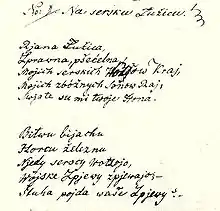 No: 1. Na sersku Łužicu. 1/3
Rjana Łužica,
Zprawna, pšećelna,
Mojich serskich Wótcow Kraj,
Mojich zbóžnych Sonow Raj,
Swjate su mi twoje Hona.
Bitwu bijachu
Horcu železnu
Njedy serscy Wótcojo,
Wójske Zpjewy zpjewajo;
Štuha pojda waše Zpjewy?